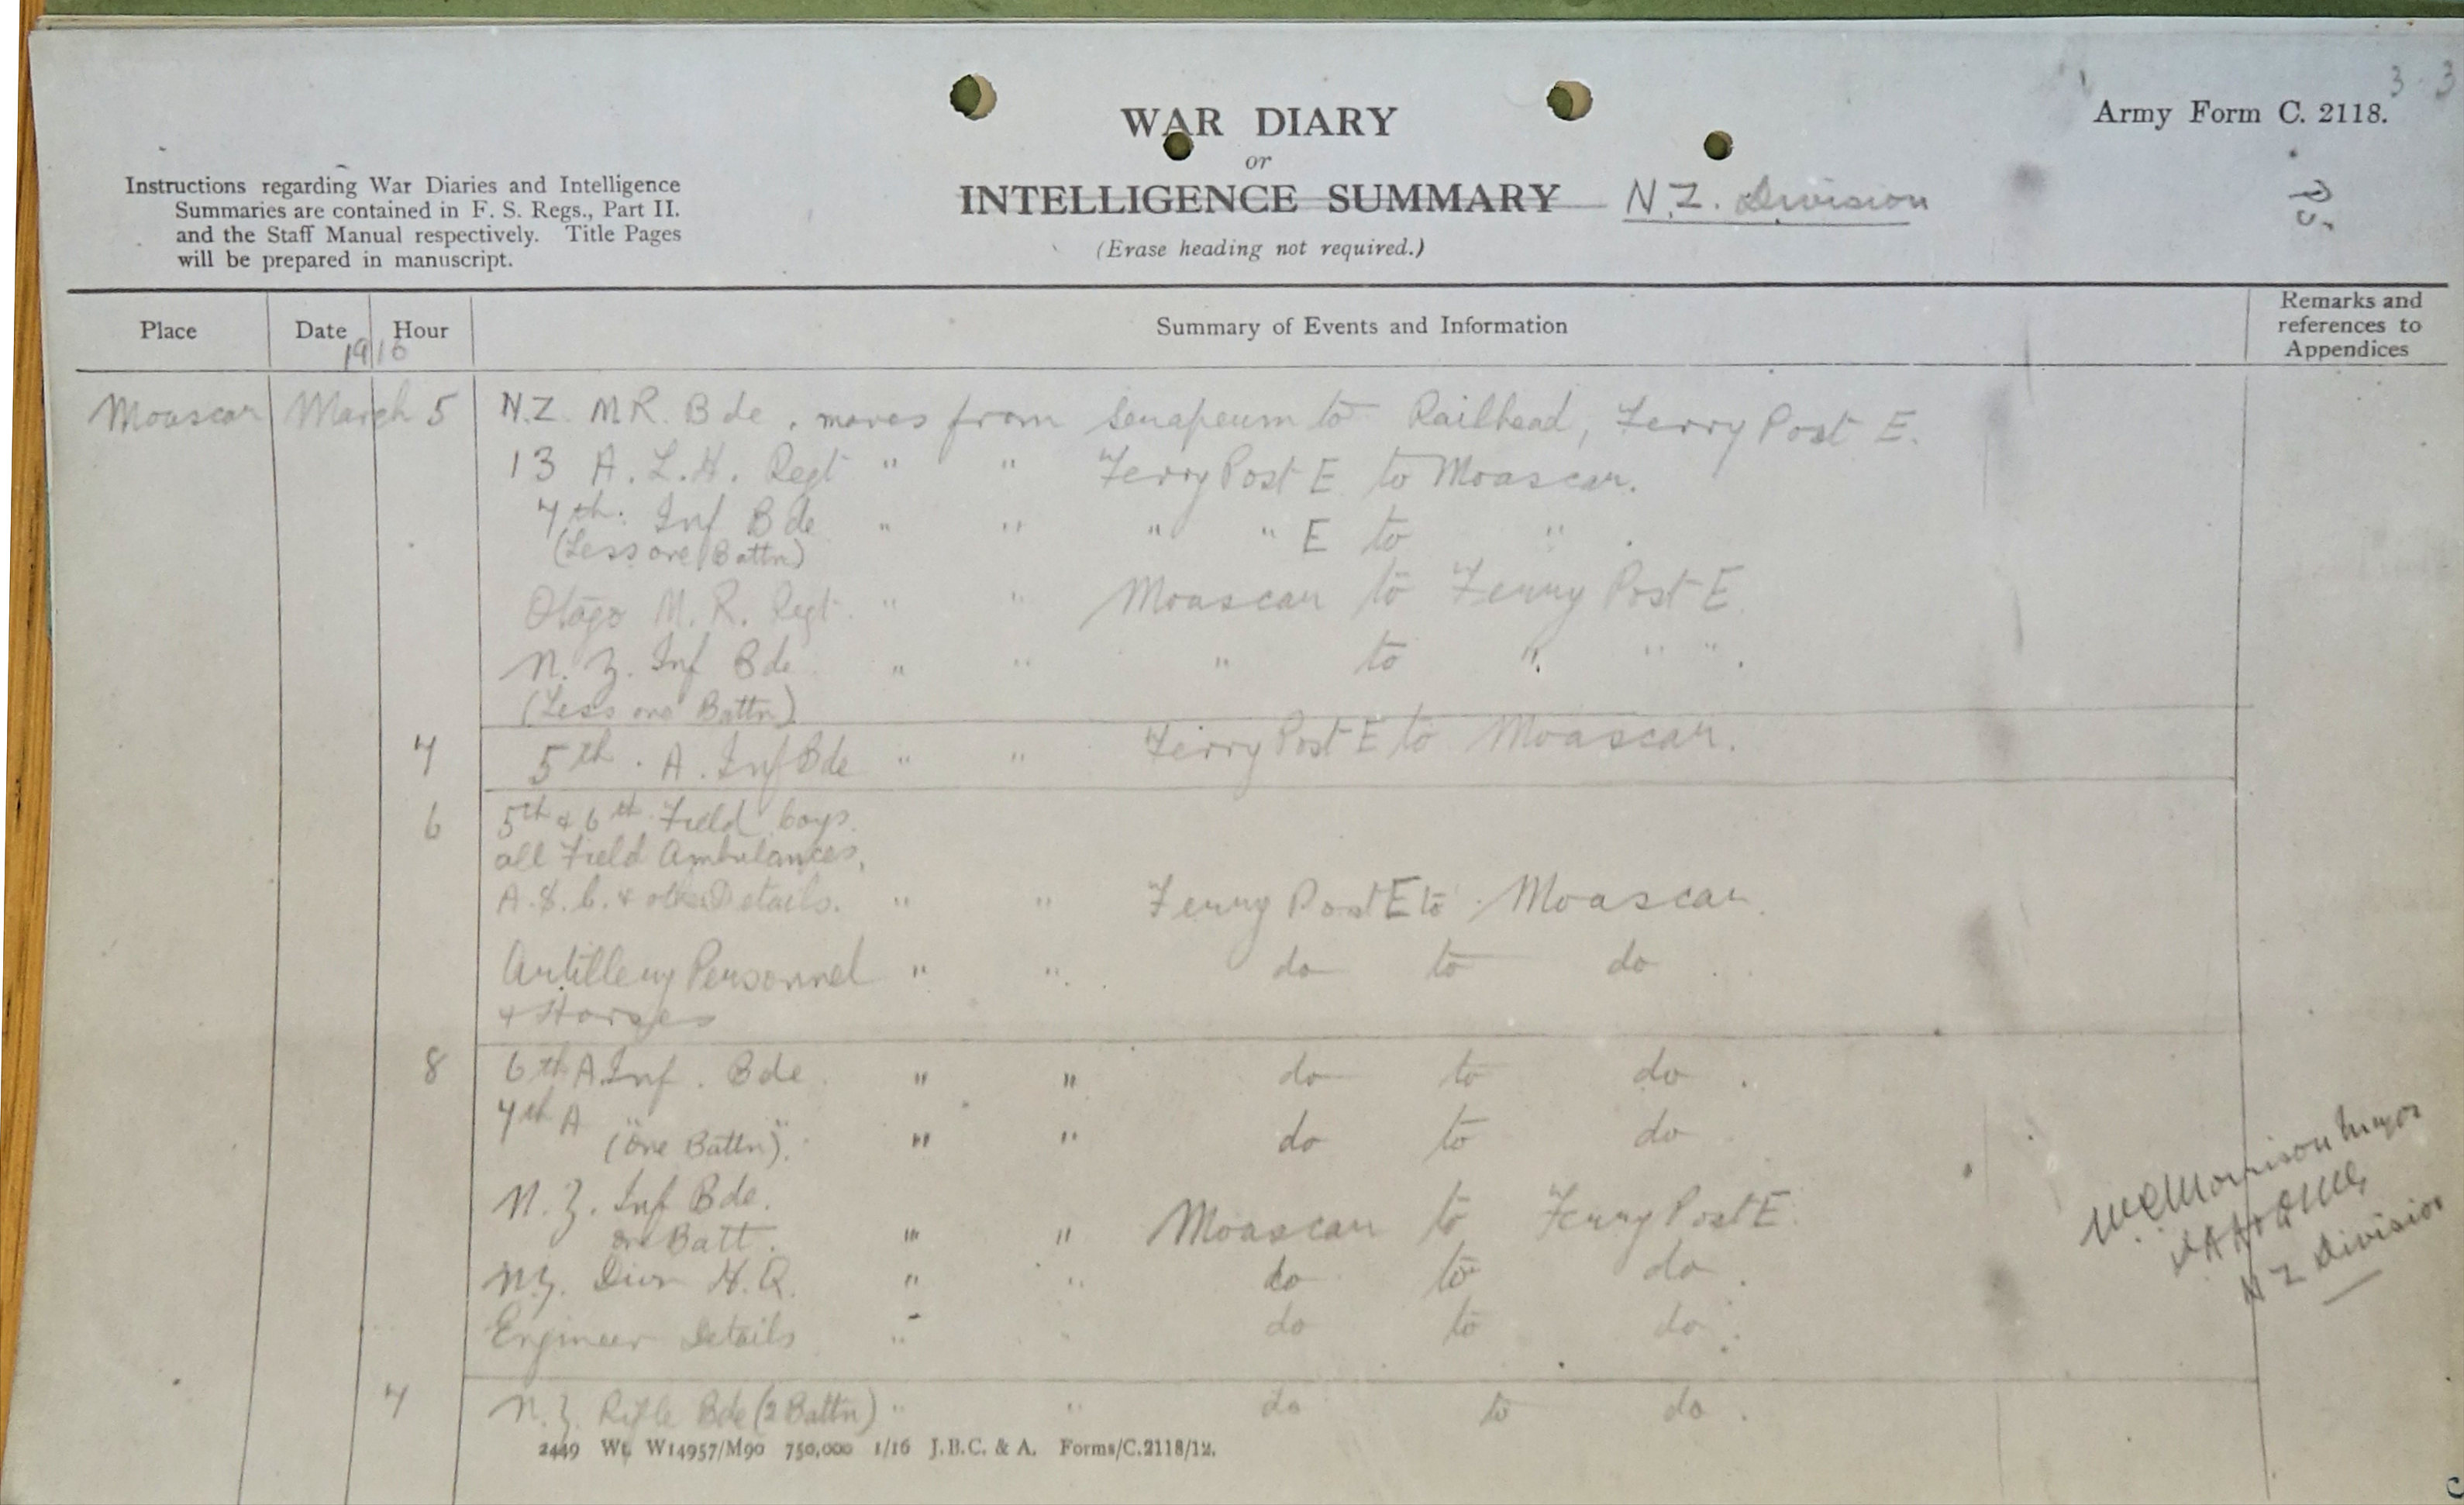 3 3
Army Form C. 2118.
WAR DIARY
or
INTELLIGENCE SUMMARY N.Z. Division
(Erase heading not required.)
Instructions regarding War Diaries and Intelligence
Summaries are contained in F. S. Regs., Part II.
and the Staff Manual respectively. Title Pages
will be prepared in manuscript.
Place Date Hour Summary of Events and Information Remarks and references to Appendices
1916
Moascar March 5 N.Z. M.R. Bde. moves from Serapeum to Railhead, Ferry Post E.
13 A. L. H. Regt " " Ferry Post E to Moascar.
4th. Inf Bde " " " " E to " .
(Less one Battn)
Otago M. R. Regt. " " Moascar to Ferry Post E
N. Z. Inf Bde " " " to " " " .
(Less one Battn)
7 5th. A. Inf Bde " " Ferry Post E to Moascar.
6 5th & 6th Field Coys.
all Field Ambulances,
A.S.C. & other Details. " " Ferry Post E to Moascar.
Artillery Personnel " " do to do
& Horses
8 6th A. Inf. Bde. " " do to do .
4th A " "
(one Battn). " " do to do
N. Z. Inf Bde.
one Batt. " " Moascar to Ferry Post E.
N.Z. Divn H.Q. " " do to do .
Engineer Details " " do to do .
N.Z. Rifle Bde (2 Battn) " " do to do .
Morrison Major
N Z Division
2449 Wt. W14957/M90 750,000 1/16 J.B.C. & A. Forms/C.2118/12.